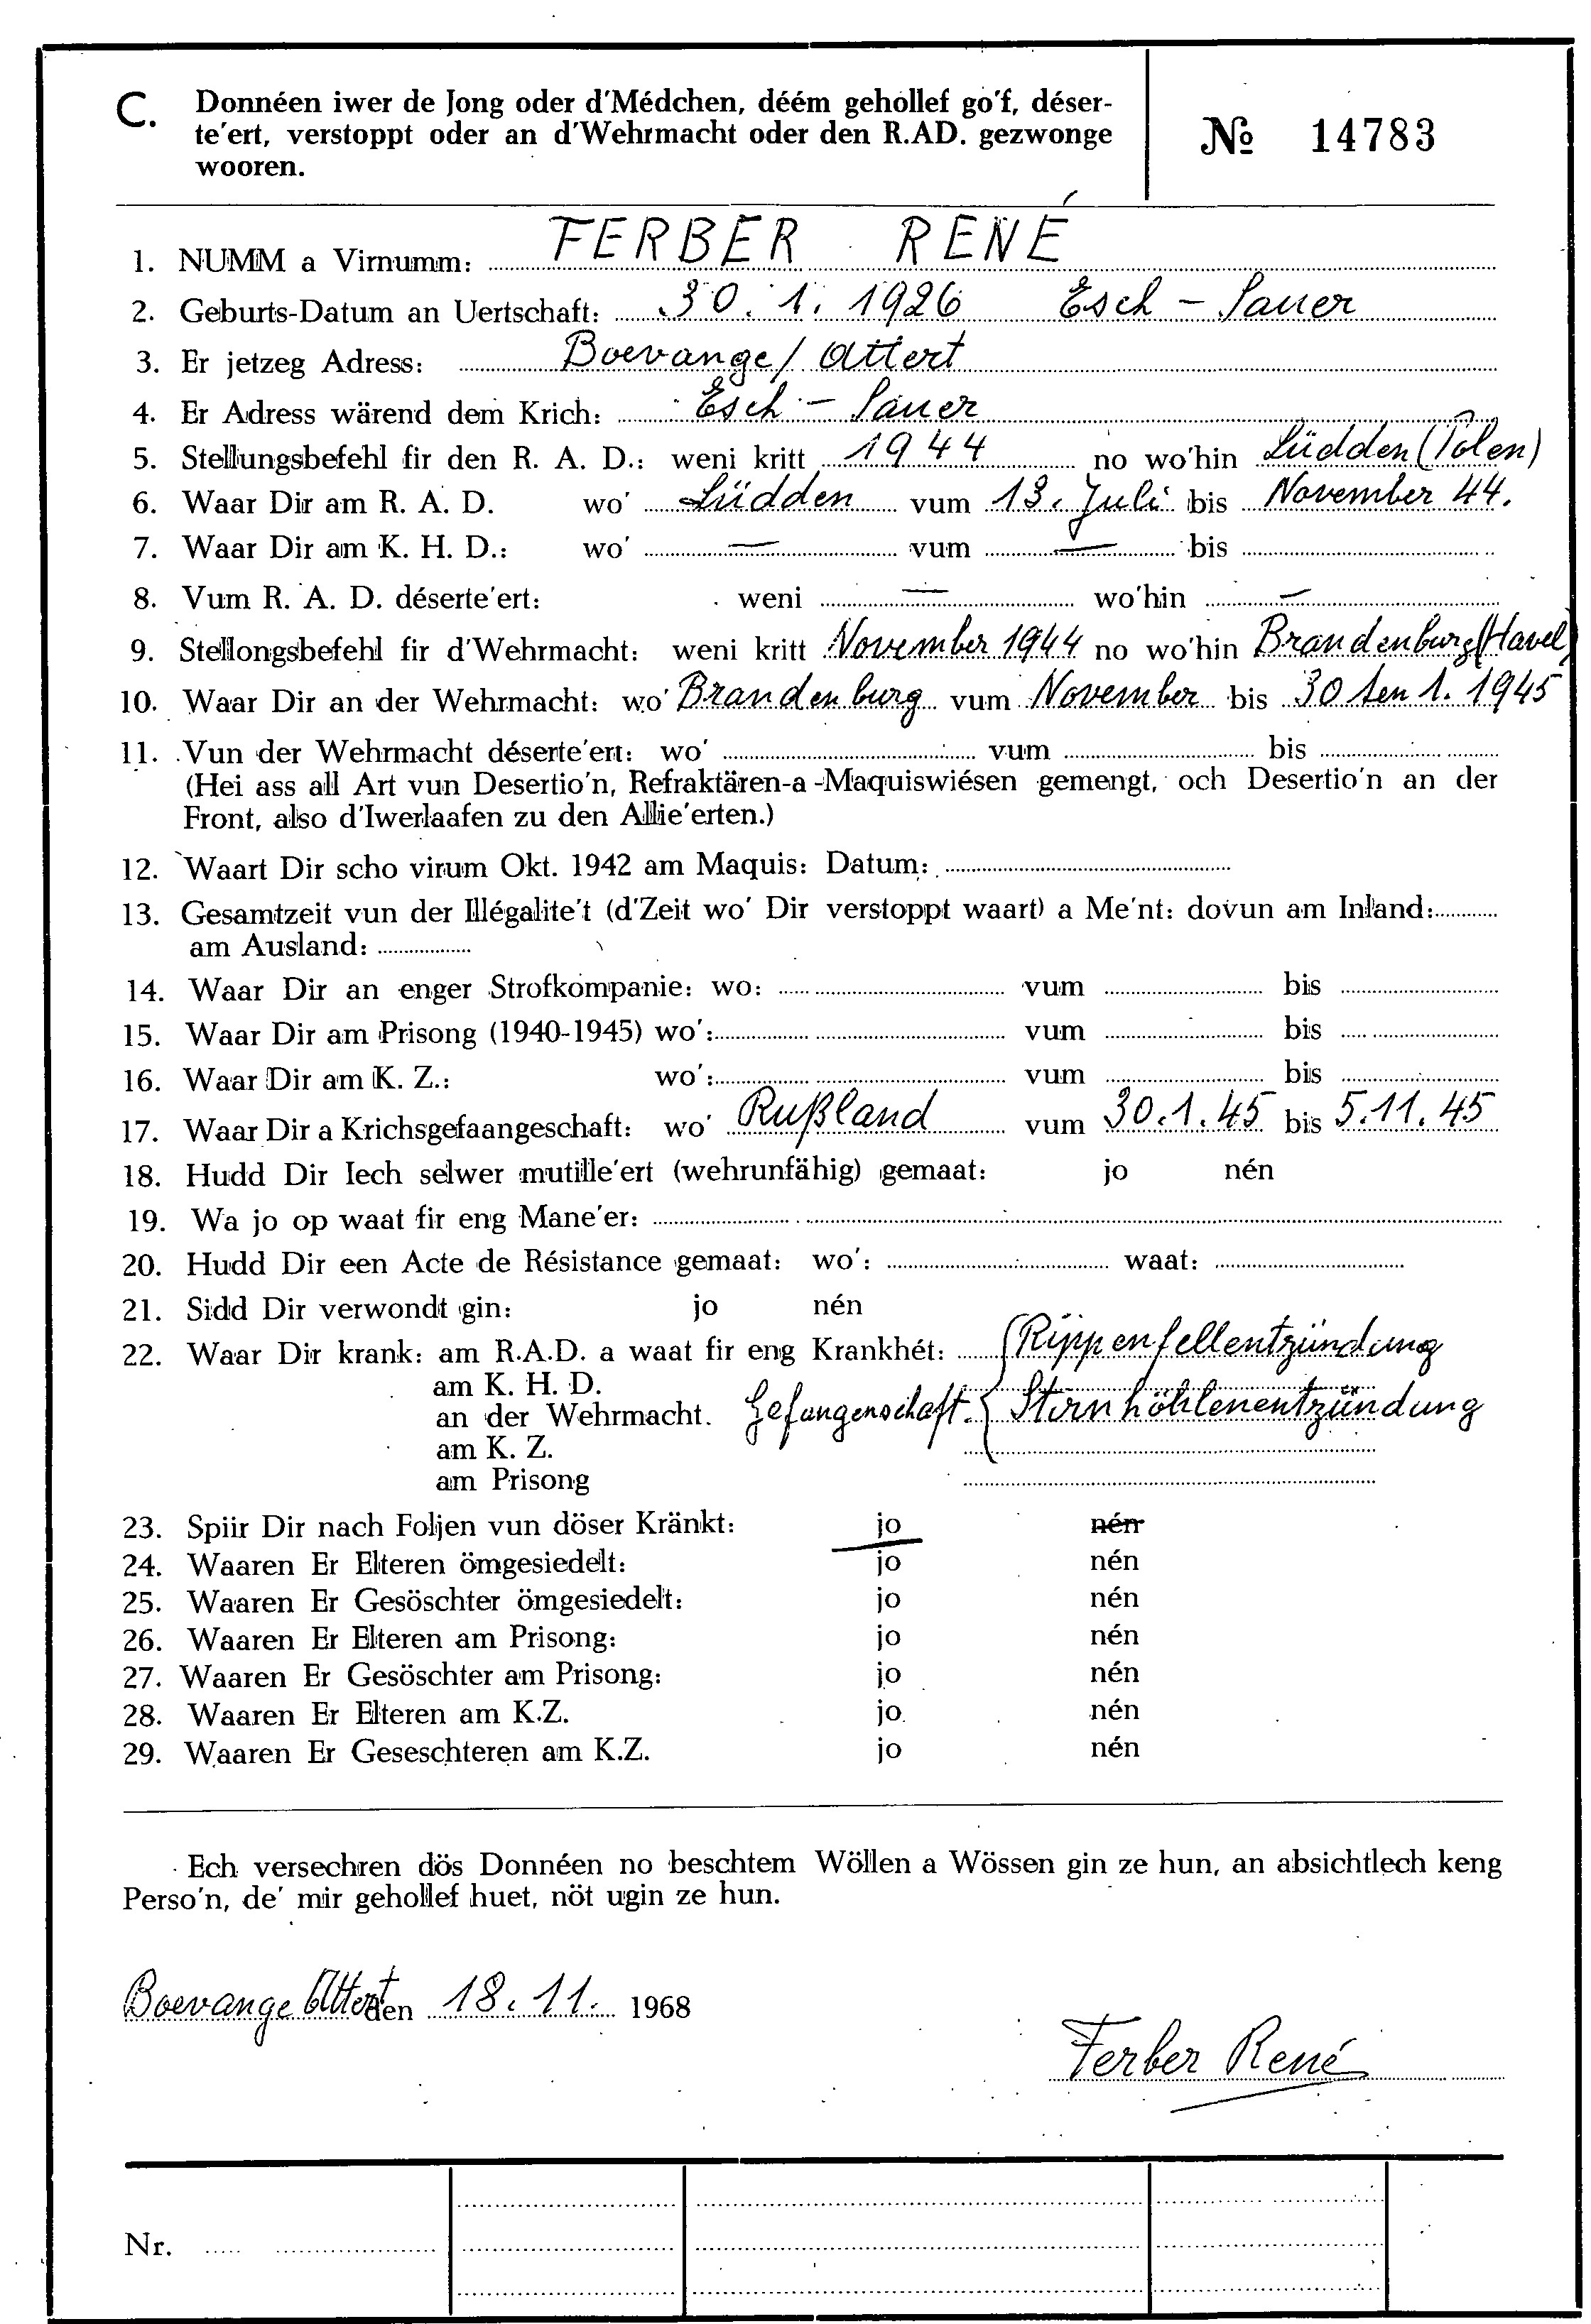 C. Donnéen iwer de Jong oder d'Médchen, déém gehollef go'f, déser-
te'ert, verstoppt oder an d'Wehrmacht oder den R.AD. gezwonge
wooren.
№ 14783
1. NUMM a Virnumm: FERBER RENÉ
2. Geburts-Datum an Uertschaft: 30. 1. 1926 Esch - Sauer
3. Er jetzeg Adress: Boevange / Attert
4. Er Adress wärend dem Krich: Esch - Sauer
5. Stellungsbefehl fir den R. A. D.: weni kritt 1944 no wo'hin Lüdden (Polen)
6. Waar Dir am R. A. D. wo' Lüdden vum 13. Juli bis November 44.
7. Waar Dir am K. H. D.: wo' — vum — bis
8. Vum R. A. D. déserte'ert: weni — wo'hin —
9. Stellongsbefehl fir d'Wehrmacht: weni kritt November 1944 no wo'hin Brandenburg (Havel)
10. Waar Dir an der Wehrmacht: wo' Brandenburg vum November bis 30 ten 1. 1945
11. Vun der Wehrmacht déserte'ert: wo' vum bis
(Hei ass all Art vun Desertio'n, Refraktären-a-Maquiswiésen gemengt, och Desertio'n an der
Front, also d'Iwerlaafen zu den Allie'erten.)
12. Waart Dir scho virum Okt. 1942 am Maquis: Datum:
13. Gesamtzeit vun der Illégalite't (d'Zeit wo' Dir verstoppt waart) a Me'nt: dovun am Inland:
am Ausland:
14. Waar Dir an enger Strofkompanie: wo: vum bis
15. Waar Dir am Prisong (1940-1945) wo': vum bis
16. Waar Dir am K. Z.: wo': vum bis
17. Waar Dir a Krichsgefaangeschaft: wo' Rußland vum 30.1.45 bis 5.11.45
18. Hudd Dir Iech selwer mutille'ert (wehrunfähig) gemaat: jo nén
19. Wa jo op waat fir eng Mane'er:
20. Hudd Dir een Acte de Résistance gemaat: wo': waat:
21. Sidd Dir verwondt gin: jo nén
22. Waar Dir krank: am R.A.D. a waat fir eng Krankhét: Rippenfellentzündung
am K. H. D.
an der Wehrmacht. Gefangenschaft. Stirnhöhlenentzündung
am K. Z.
am Prisong
23. Spiir Dir nach Foljen vun döser Kränkt: jo nén
24. Waaren Er Elteren ömgesiedelt: jo nén
25. Waaren Er Gesöschter ömgesiedelt: jo nén
26. Waaren Er Elteren am Prisong: jo nén
27. Waaren Er Gesöschter am Prisong: jo nén
28. Waaren Er Elteren am K.Z. jo nén
29. Waaren Er Geseschteren am K.Z. jo nén
Ech versechren dös Donnéen no beschtem Wöllen a Wössen gin ze hun, an absichtlech keng
Perso'n, de' mir gehollef huet, nöt ugin ze hun.
Boevange Attert den 18. 11. 1968
Ferber René
Nr.